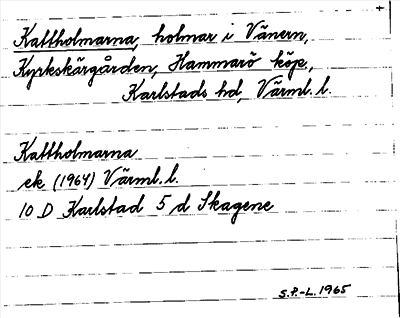 Kattholmarna, holmar i Vänern,
Kyrkskärgården, Hammarö köp.,
Karlstads hd, Värml. l.
Kattholmarna
ek (1964) Värml. l.
10 D Karlstad 5 d Skagene
S.P.-L. 1965